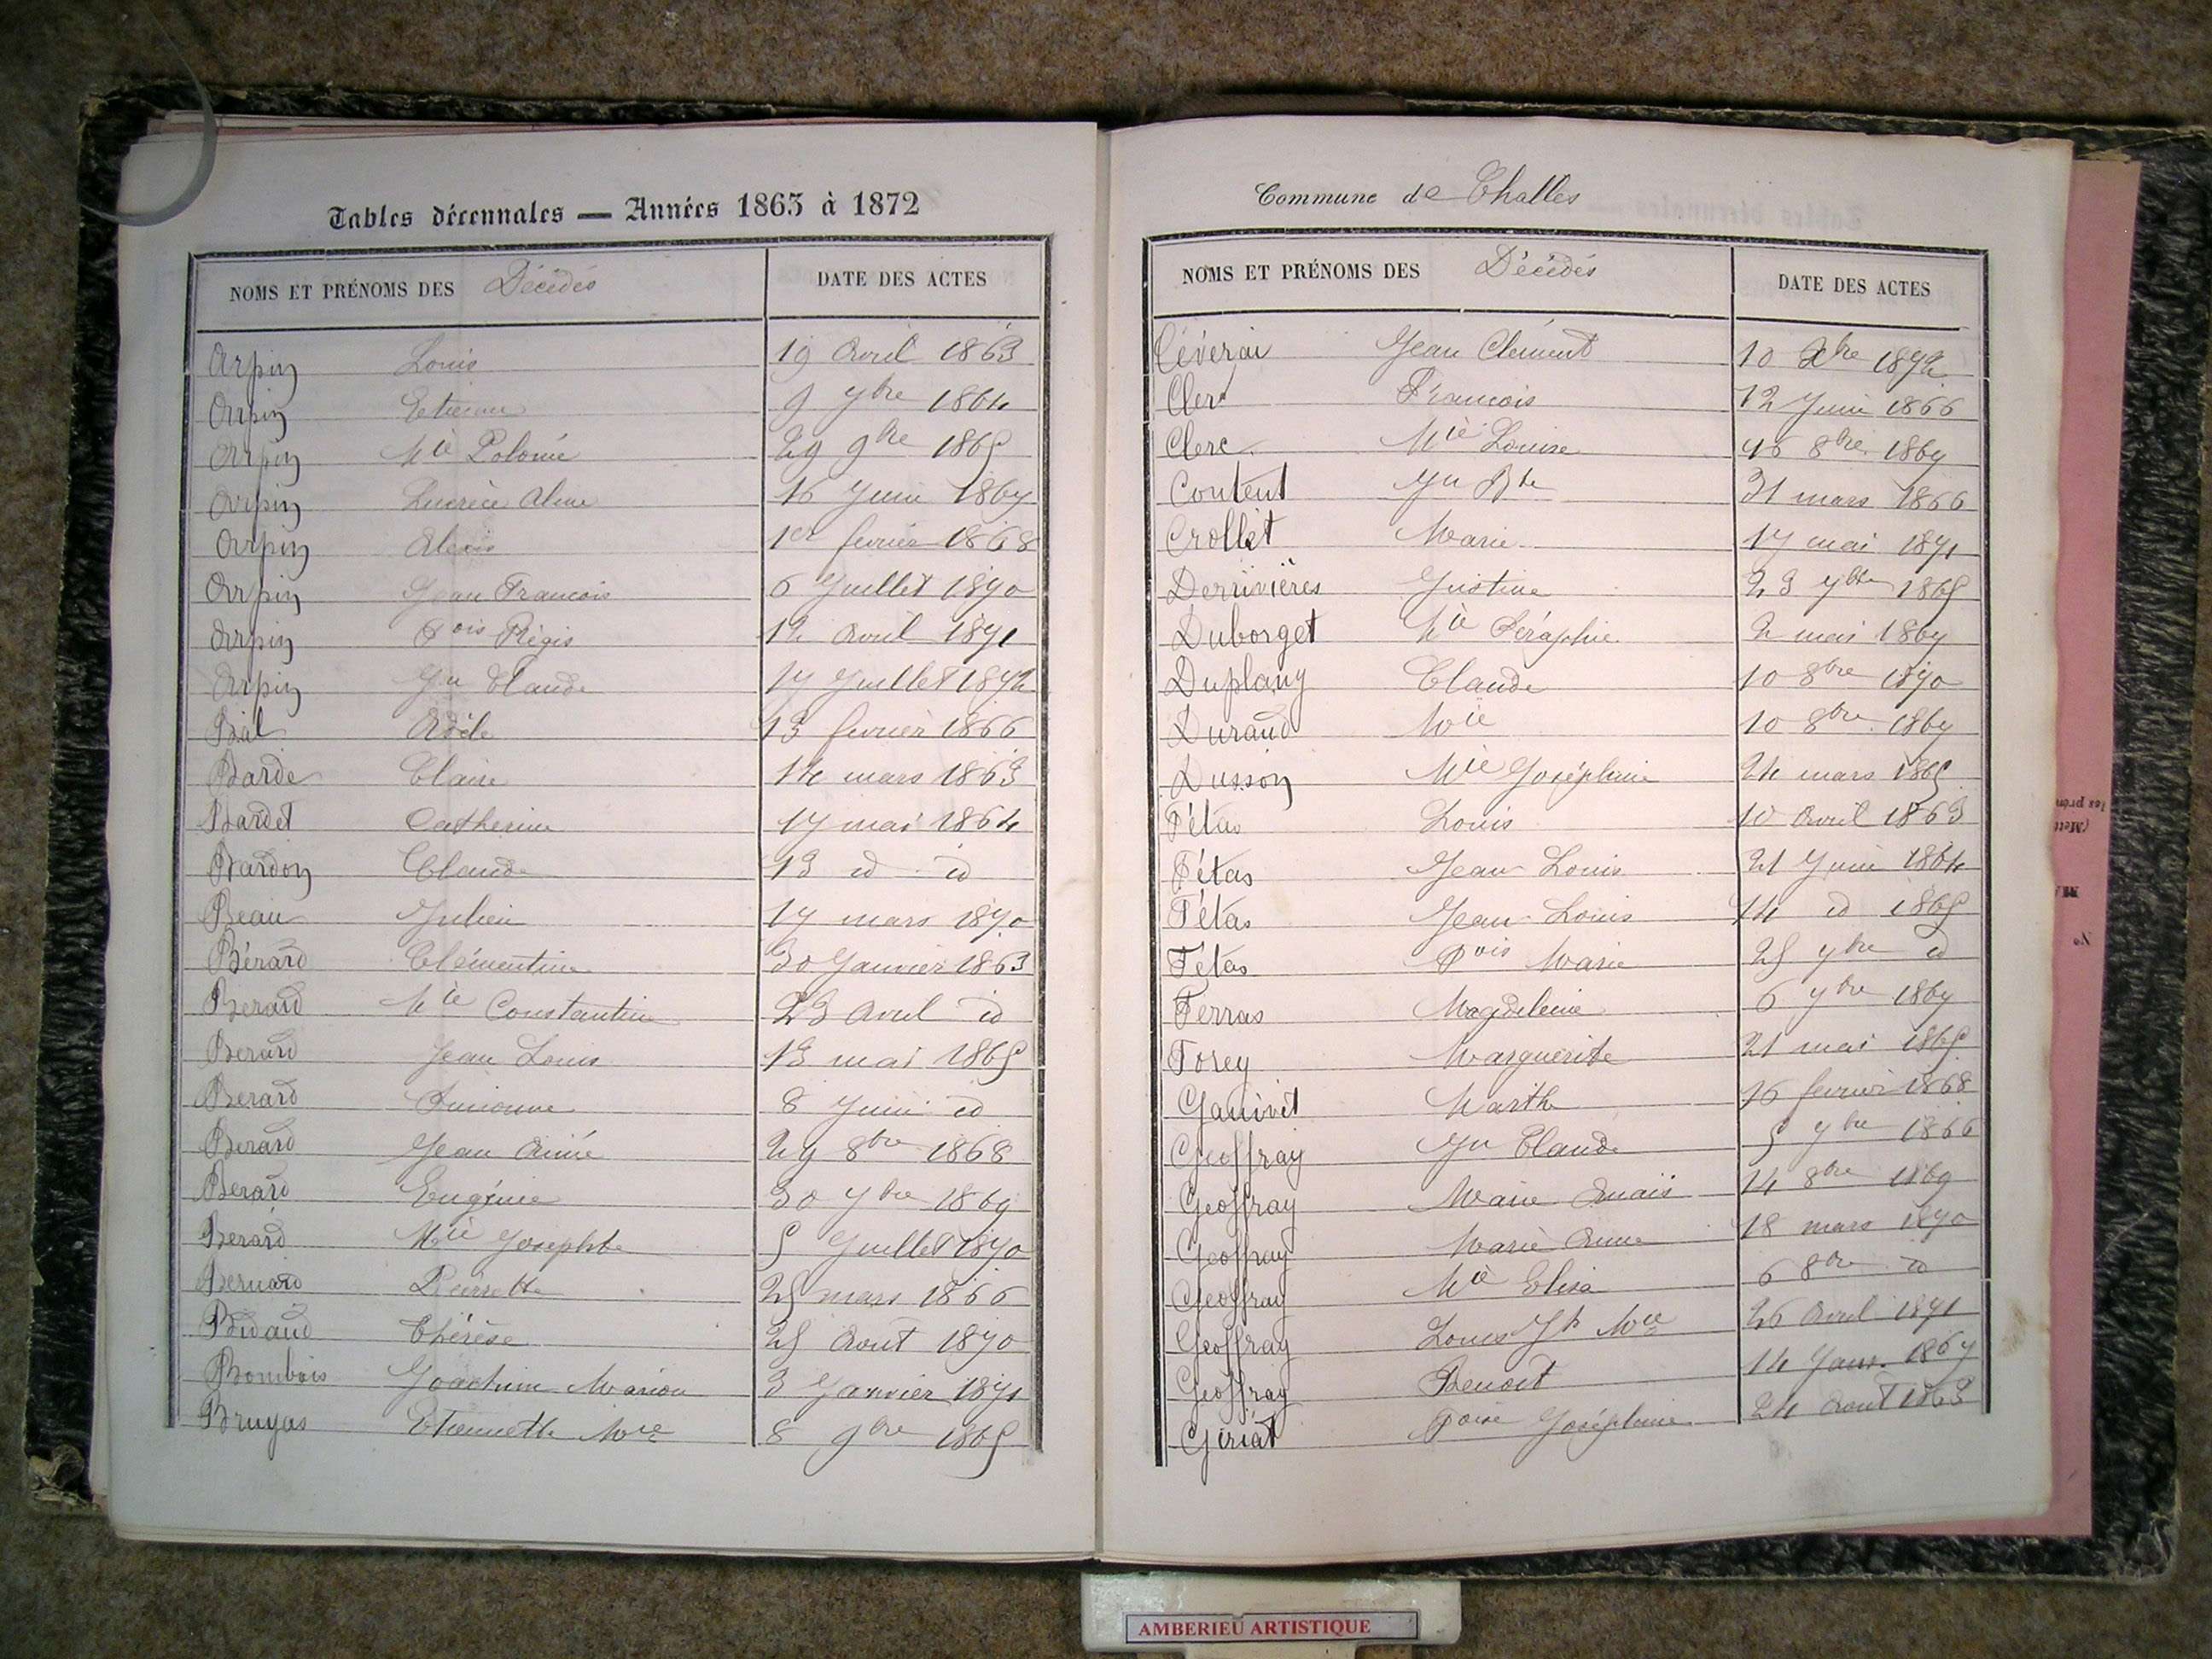 Tables décennales — Années 1863 à 1872
NOMS ET PRÉNOMS DES Décédés DATE DES ACTES
Arpin Louis 19 Avril 1863
Arpin Etienne 9 7bre 1864
Arpin Mie Polonie 29 9bre 1865
Arpin Lucrèce Aline 16 Juin 1867
Arpin Alexis 1er février 1868
Arpin Jean Francois 6 Juillet 1870
Arpin Fois Régis 12 Avril 1871
Arpin Jn Claude 17 Juillet 1872
Bal Adèle 13 fevrier 1866
Barde Claire 14 mars 1863
Bardet Catherine 17 mai 1864
Bardon Claude 13 id id
Beau Julien 17 mars 1870
Bérard Clémentine 30 Janvier 1863
Berard Mie Constantine 23 Avril id
Berard Jean Louis 13 mai 1865
Berard 8 Juin id
Berard Jean Aimé 29 8bre 1868
Berard Eugénie 30 7bre 1869
Berard Mie Josephte 5 Juillet 1870
Bernard Pierrette 25 mars 1866
Bidaud Thérèse 25 Aout 1870
Bombois Joachim Marion 3 Janvier 1871
Bruyas Etiennette Mie 8 9bre 1865
Commune de Challes
NOMS ET PRÉNOMS DES Décédés DATE DES ACTES
Jean Clément 10 Xbre 1872
Clerc Francois 12 Juin 1866
Clerc Mie Louise 16 8bre 1867
Content Jn Bte 31 mars 1866
Crollet Marie 17 mai 1871
Derrivières Justine 23 7bre 1865
Duborget Mie Séraphie 2 mai 1867
Duplany Claude 10 8bre 1870
Durand Mie 10 8bre 1867
Dusson Mie Joséphine 24 mars 1865
Fétas Louis 10 Avril 1863
Fétas Jean Louis 21 Juin 1864
Fétas Jean Louis 14 id 1865
Fétas Fois Marie 25 7bre id
Ferras Magdeleine 6 7bre 1867
Forey Marguerite 21 mai 1865
Ganivet Marthe 16 fevrier 1868
Geoffray Jn Claude 5 7bre 1866
Geoffray Marie Anaïs 14 8bre 1869
Geoffray Marie Anne 18 mars 1870
Geoffray Mie Elisa 6 8bre id
Geoffray Louis Jh Mie 26 Avril 1871
Geoffray Benoit 14 Janv. 1867
Giriat Foise Joséphine 24 Aout 1863
AMBERIEU ARTISTIQUE